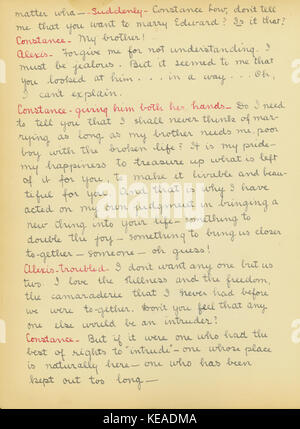 matter wha — Suddenly — Constance Gour, don't tell
me that you want to marry Edward? Is it that?
Constance — My brother!
Alexis — Forgive me for not understanding. I
must be jealous. But it seemed to me that
you looked at him . . . in a way . . . Oh,
I can't explain.
Constance — giving him both her hands — Do I need
to tell you that I shall never think of mar-
rying as long as my brother needs me, poor
boy with the broken life? It is my pride —
my happiness to treasure up what is left
of it for you, to make it livable and beau-
tiful for you. And that is why I have
acted on my own judgment in bringing a
new thing into your life — something to
double the joy — something to bring us closer
to-gether — someone — oh guess!
Alexis — troubled — I don't want any one but us
two. I love the stillness and the freedom,
the camaraderie that I never had before
we were to-gether. Don't you feel that any
one else would be an intruder?
Constance — But if it were one who had the
best of rights to "intrude" — one whose place
is naturally here — one who has been
kept out too long —
alamy
KEADMA